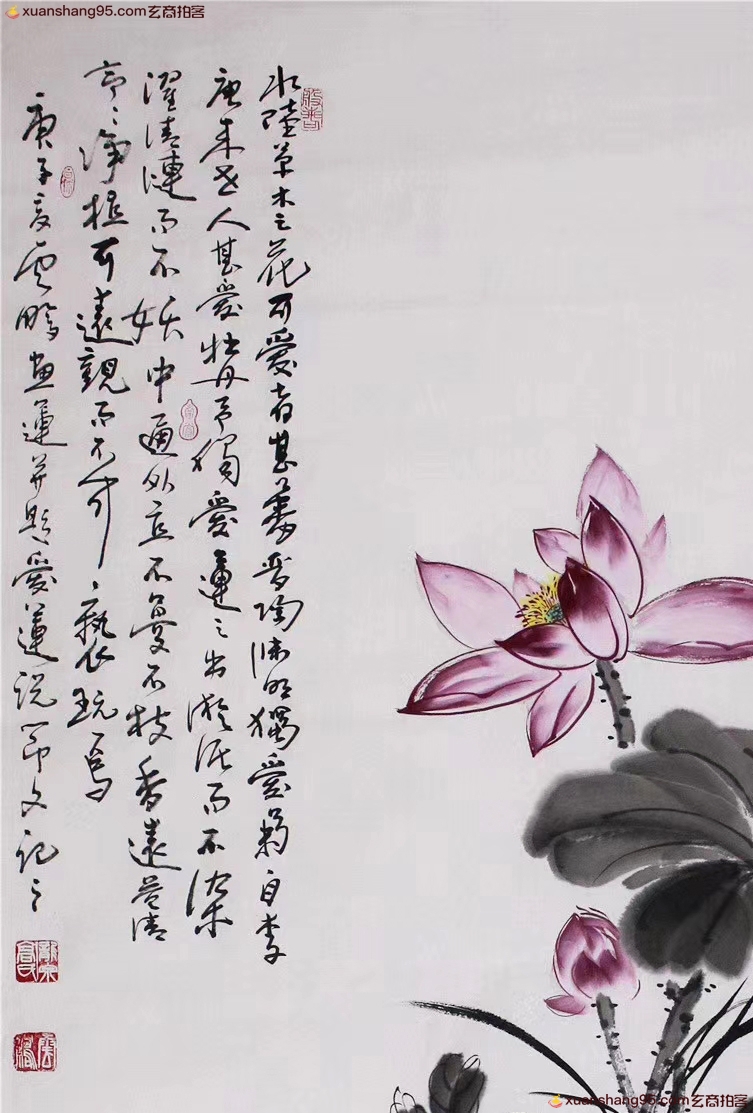 xuanshang95.com玄商拍客
水陸草木之花可愛者甚蕃晉陶淵明獨愛菊自李
唐来世人甚愛牡丹予獨愛蓮之出淤泥而不染
濯清漣而不妖中通外直不蔓不枝香遠益清
亭々淨植可遠觀而不可褻玩焉
庚子夏雲鵬畫蓮并題愛蓮説節文記之
xuanshang95.com玄商拍客